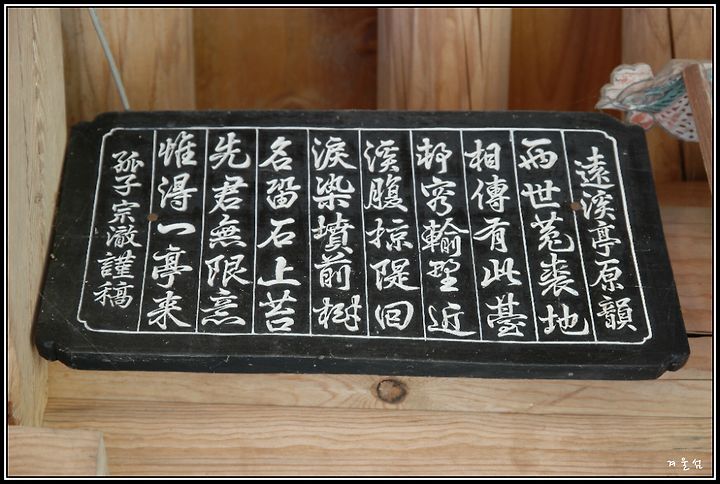 遠溪亭原韻
兩世菟裘地
相傳有此臺
邨輸近
溪腹掠隄回
淚染墳前樹
名留石上苔
先君無限意
惟得一亭来
孤子宗澈謹稿
겨울섬